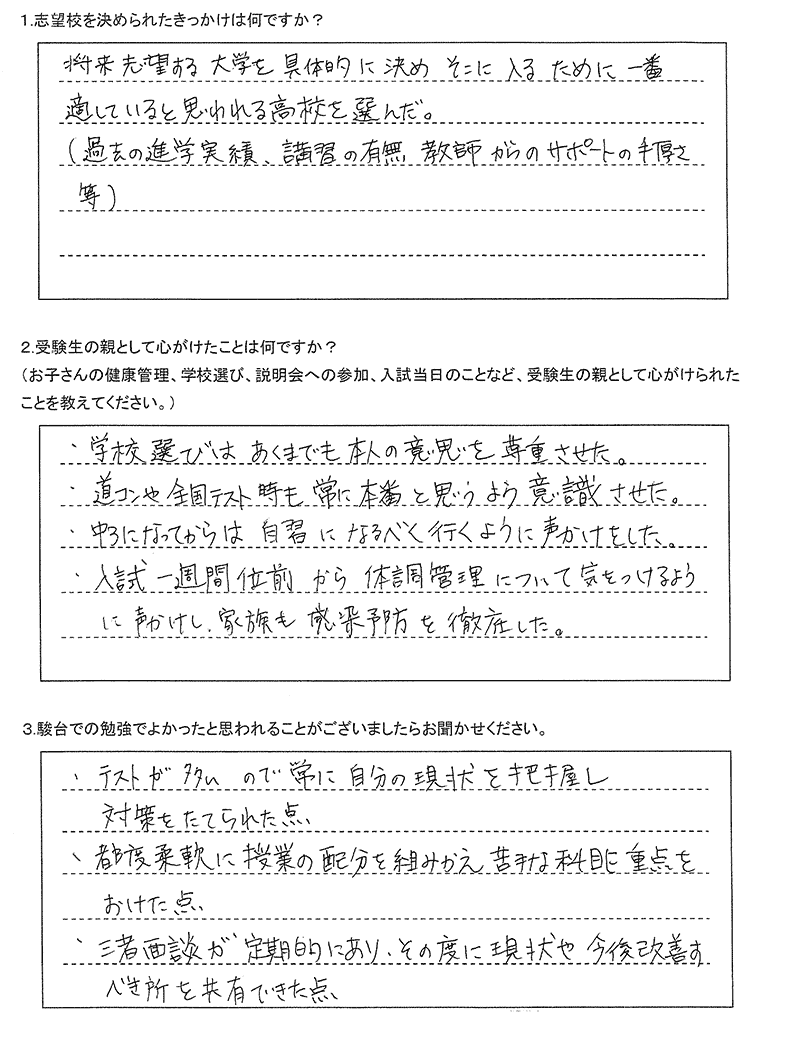 1.志望校を決められたきっかけは何ですか？
将来志望する大学を具体的に決めそこに入るために一番
適していると思われる高校を選んだ。
(過去の進学実績、講習の有無、教師からのサポートの手厚さ
等)
2.受験生の親として心がけたことは何ですか？
（お子さんの健康管理、学校選び、説明会への参加、入試当日のことなど、受験生の親として心がけられた
ことを教えてください。）
・学校選びはあくまでも本人の意思を尊重させた。
・道コンや全国テスト時も常に本番と思うよう意識させた。
・中3になってからは自習になるべく行くように声かけをした。
・入試一週間位前から体調管理について気をつけるよう
に声かけし、家族も感染予防を徹底した。
3.駿台での勉強でよかったと思われることがございましたらお聞かせください。
・テストが多いので常に自分の現状を把握し
対策をたてられた点、
・都度柔軟に授業の配分を組みかえ苦手な科目に重点を
おけた点、
・三者面談が定期的にあり、その度に現状や今後改善す
べき所を共有できた点、